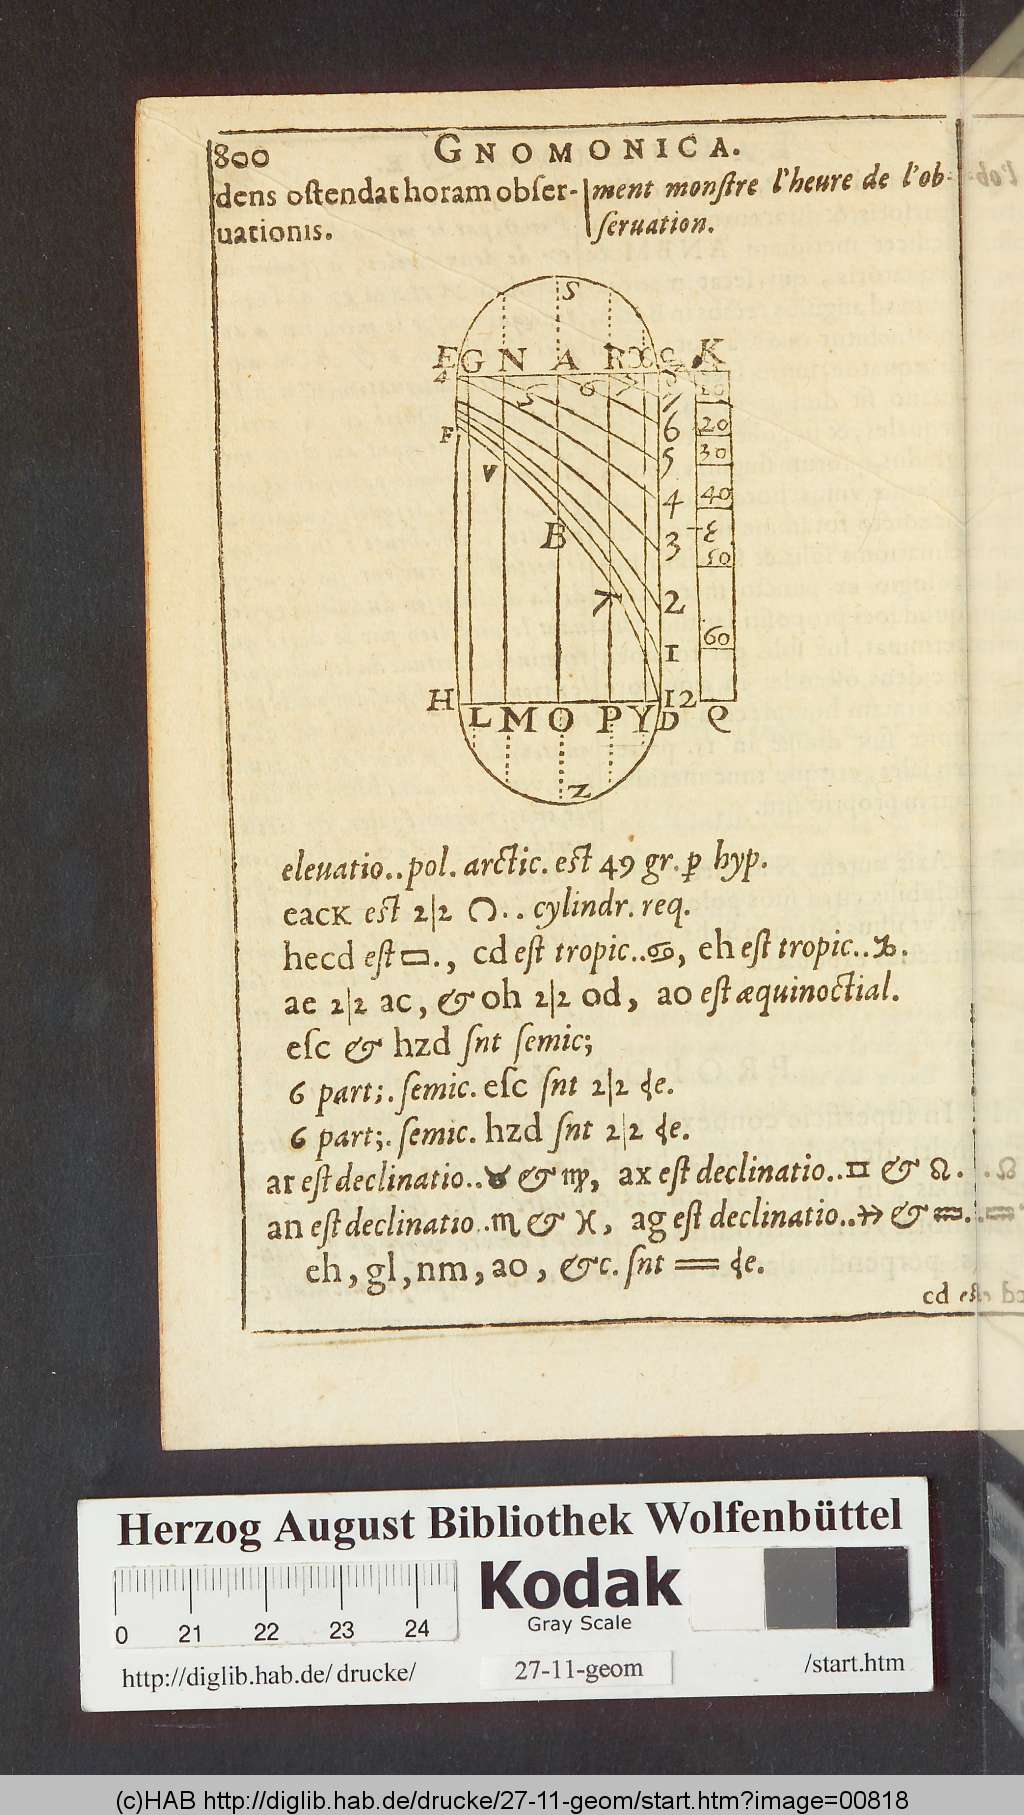 800 GNOMONICA.
dens ostendat horam obser-
uationis.
ment monstre l'heure de l'ob-
seruation.
S
E G N A R X C K
4 5 6 7 8
7
6
5
4
3
2
1
12
10
20
30
40
Ɛ
50
60
F
V
B
T
H
L M O P Y D Q
Z
eleuatio.. pol. arctic. est 49 gr. ꝑ hyp.
eacK est 2|2 .. cylindr. req.
hecd est ▭., cd est tropic..♋, eh est tropic..♑.
ae 2|2 ac, & oh 2|2 od, ao est æquinoctial.
esc & hzd snt semic;
6 part;. semic. esc snt 2|2 ɖe.
6 part;. semic. hzd snt 2|2 ɖe.
ar est declinatio..♉ & ♍, ax est declinatio..♊ & ♌.
an est declinatio..♏ & ♓, ag est declinatio..♐ & ♒.
eh, gl, nm, ao, &c. snt == ɖe.
cd est
Herzog August Bibliothek Wolfenbüttel
Kodak
Gray Scale
0 21 22 23 24
http://diglib.hab.de/drucke/ 27-11-geom /start.htm
(c)HAB http://diglib.hab.de/drucke/27-11-geom/start.htm?image=00818